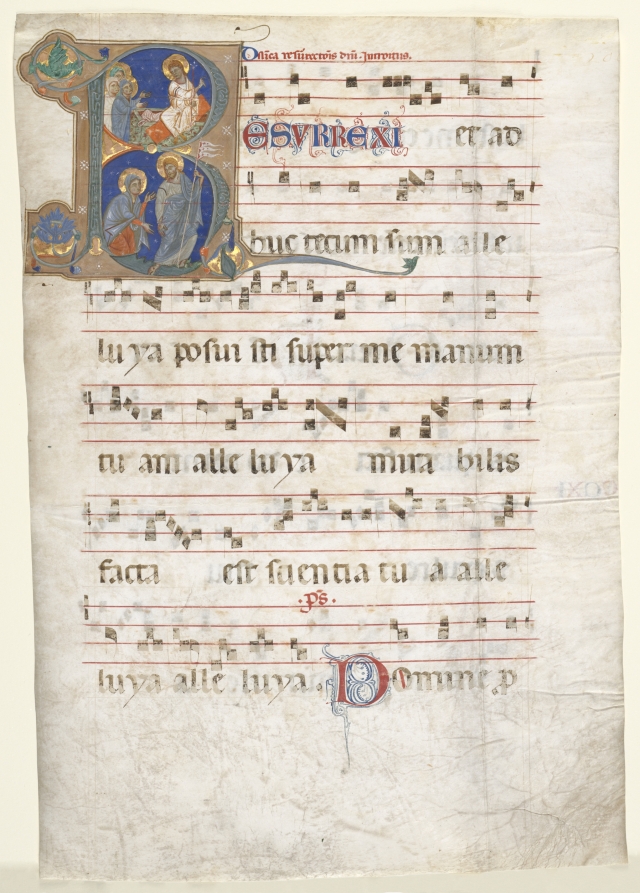 Dñica resurrectōis dñi. Introitus.
RESURREXI et ad
huc tecum sum alle
lu ya posui sti super me manum
tu am alle lu ya mira bilis
facta est sci en tia tu a alle
·ps·
lu ya alle lu ya. Domine p